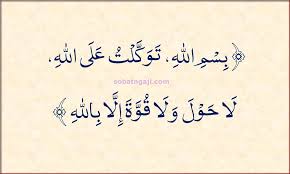 ﴿ بِسْمِ اللهِ، تَوَكَّلْتُ عَلَى اللهِ،
sobatngaji.com
لَا حَوْلَ وَلَا قُوَّةَ إِلَّا بِاللهِ ﴾